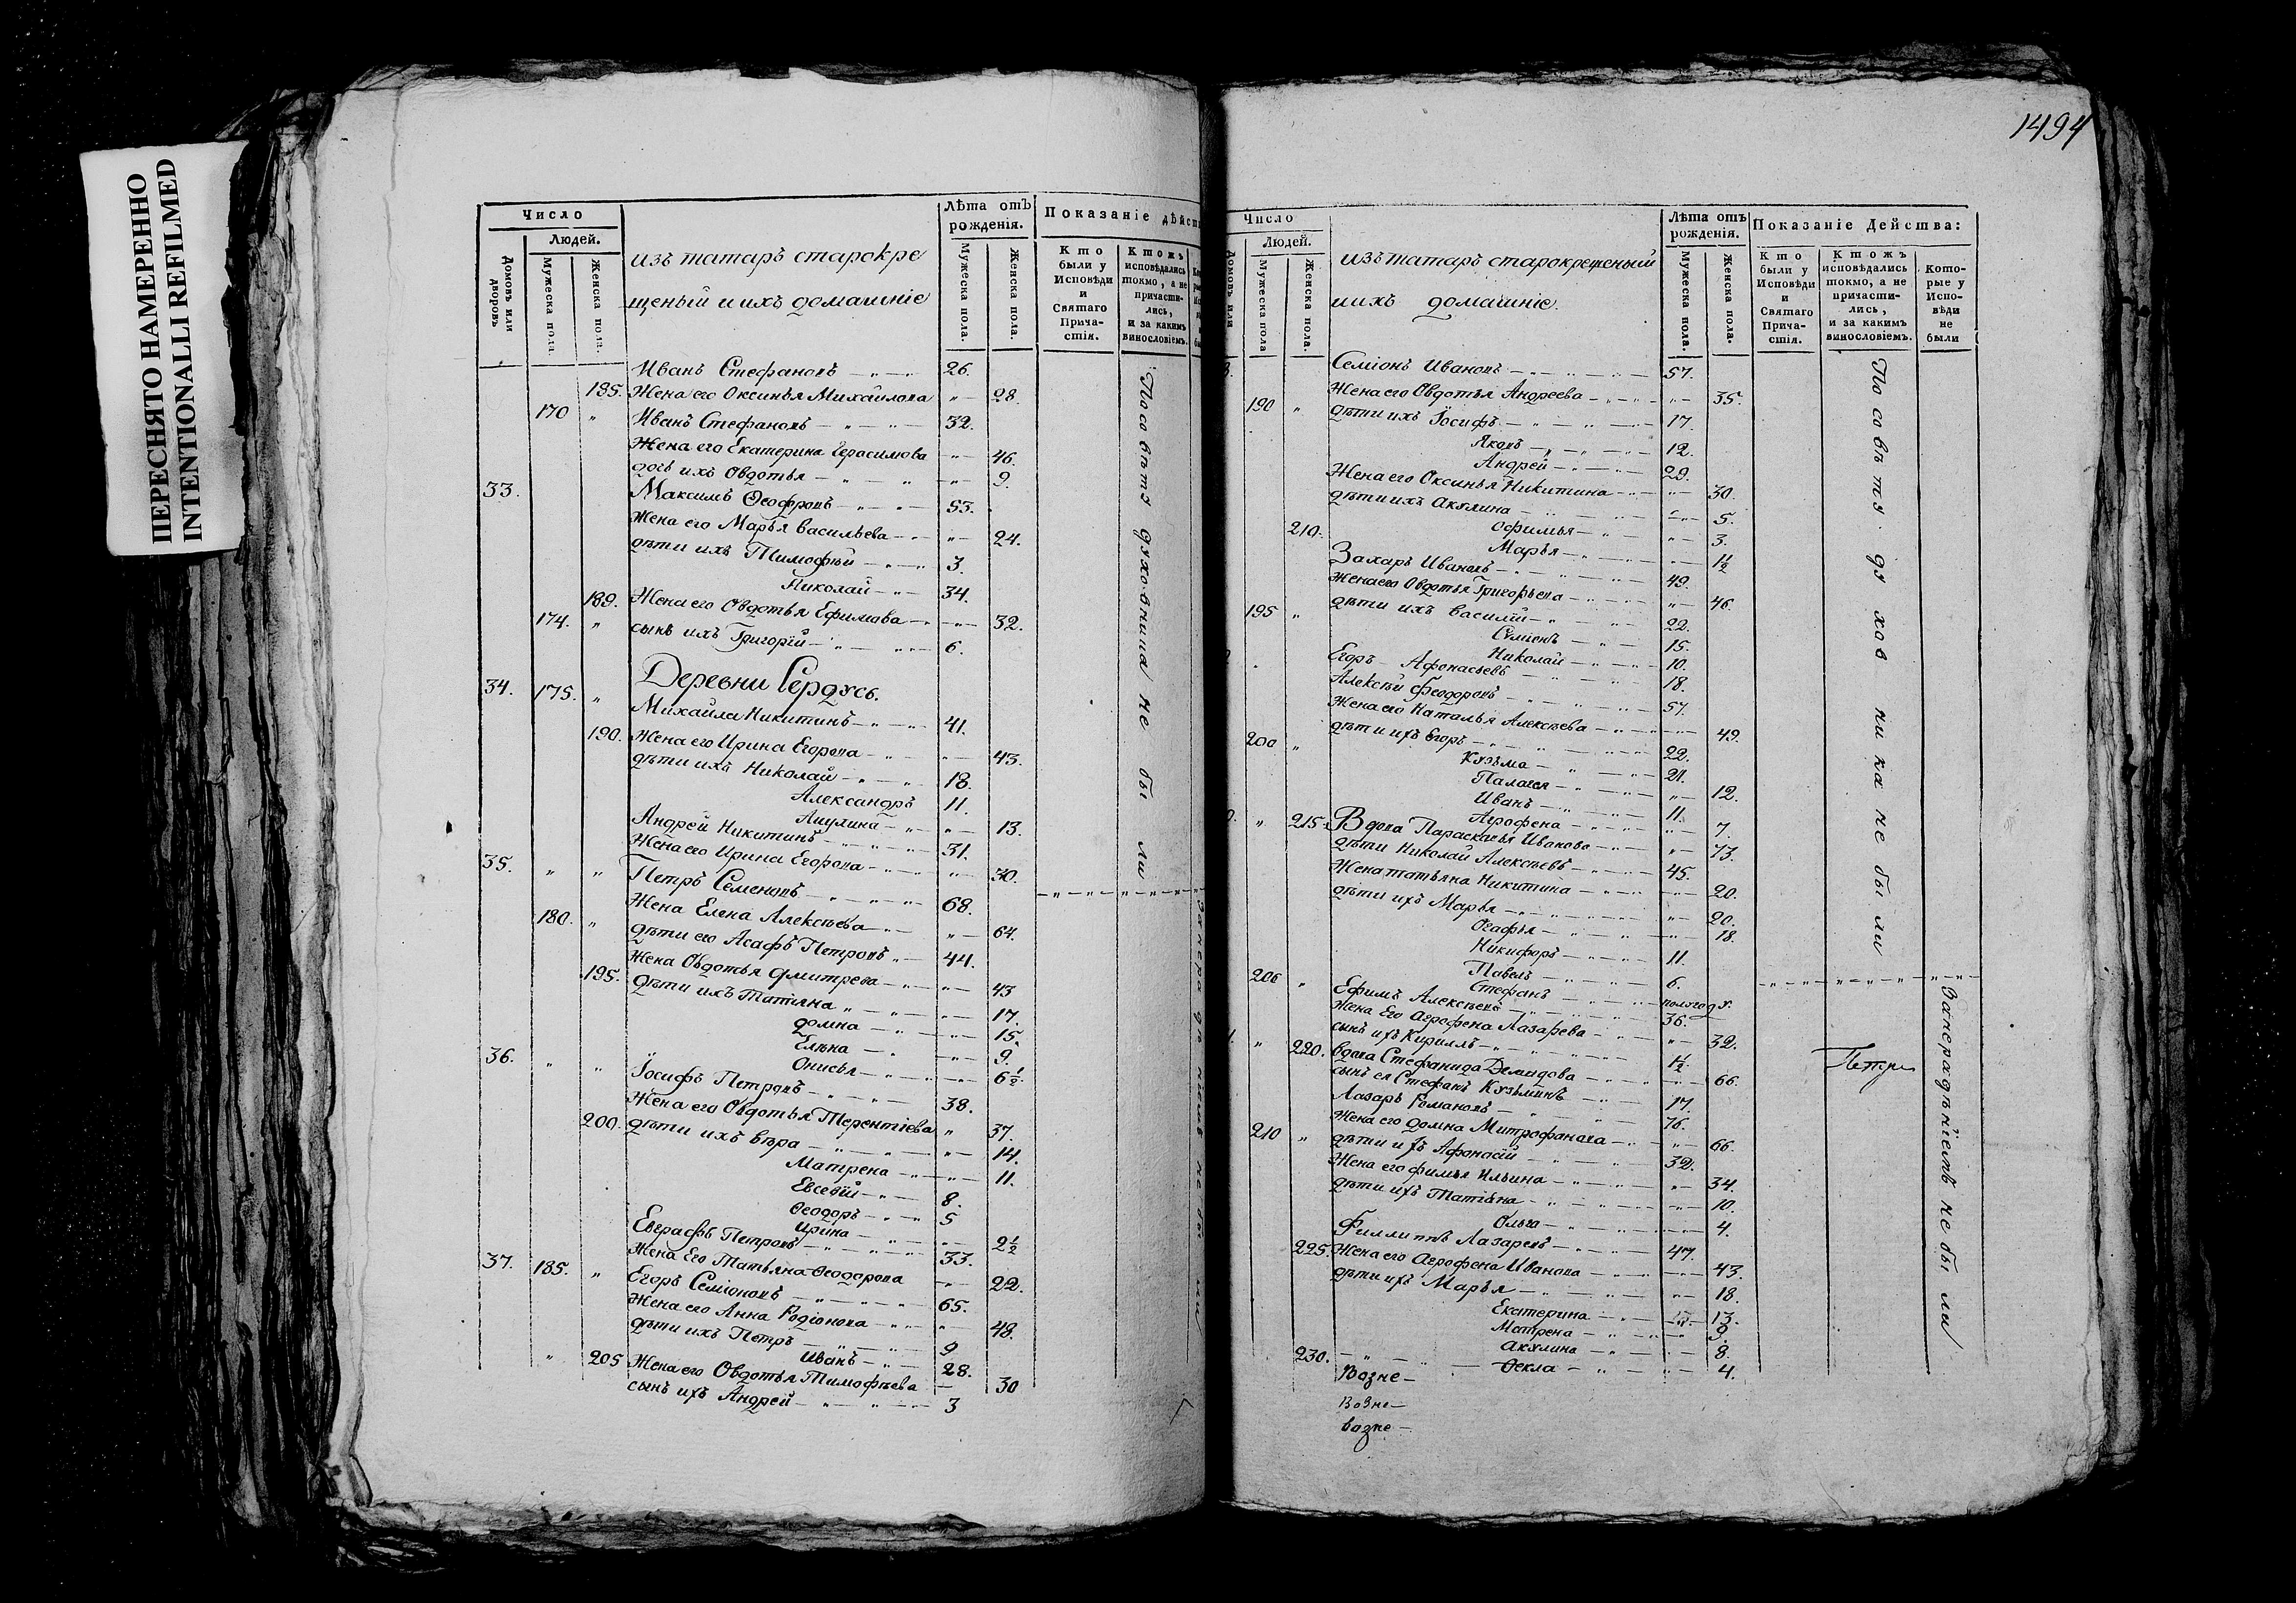 ПЕРЕСНЯТО НАМЕРЕННО
INTENTIONALLI REFILMED
1494
Число
Людей.
Домовъ или дворовъ
Мужеска пола.
Женска пола.
изъ татаръ старокре
щеный и ихъ домашніе
Лѣта отъ рожденія.
Мужеска пола.
Женска пола.
Показаніе дѣйст
Кто были у Исповѣди и Святаго Прича-стія.
Ктожъ исповѣдались токмо, а не причасти-лись, и за какимъ винословіемъ.
Иванъ Стефановъ 26.
185. Жена его Оксинья Михайлова 28.
170 Иванъ Стефановъ 32.
Жена его Екатерина Герасимова 46.
дочь ихъ Овдотья 9.
33. Максимъ Ѳеофровъ 53.
Жена его Марья Васильева 24.
дѣти ихъ Тимофѣй 3.
Николай 34.
189. Жена его Овдотья Ефимова 32.
174. сынъ ихъ Григорій 6.
Деревни Сердусь.
34. 175. Михайла Никитинъ 41.
190. Жена его Ирина Егорова 43.
дѣти ихъ Николай 18.
Александръ 11.
Акулина 13.
Андрей Никитинъ 31.
Жена его Ирина Егорова 30.
35. Петръ Семеновъ 68.
Жена Елена Алексѣева 64.
180. дѣти его Асафъ Петровъ 44.
Жена Овдотья Дмитрева 43
195. дѣти ихъ Татіяна 17.
домна 15.
Елѣна 9.
Онисья 6½.
36. Іосифъ Петровъ 38.
Жена его Овдотья Терентіева 37.
200. дѣти ихъ Вѣра 14.
Матрена 11.
Евсевій 8.
Ѳеодоръ 5
Ирина 2½
Евграфъ Петровъ 33.
Жена Его Татьяна Ѳеодорова 22.
37. 185. Егоръ Семіоновъ 65.
Жена его Анна Родіонова 48.
дѣти ихъ Петръ 9
Иванъ 28.
205 Жена его Овдотья Тимофѣева 30
сынъ ихъ Андрей 3
По совѣту духовника не были
Число
Людей.
Домовъ или
Мужеска пола
Женска пола.
изъ татаръ старокрещеный
и ихъ домашніе.
Лѣта отъ рожденія.
Мужеска пола.
Женска пола.
Показаніе Действа:
Кто были у Исповѣди и Святаго Прича-стія.
Ктожъ исповѣдались токмо, а не причасти-лись, и за какимъ винословіемъ.
Кото-рые у Испо-вѣди не были
Семіонъ Ивановъ 57.
Жена его Овдотья Андреева 35.
190 дѣти ихъ Іосифъ 17.
Яковъ 12.
Андрей 29.
Жена его Оксинья Никитина 30.
дѣти ихъ Акулина 5.
210. Офимья 3.
Марья 1½
Захаръ Ивановъ 49.
Жена его Овдотья Григорьева 46.
195 дѣти ихъ Василій 22.
Семіонъ 15.
Николай 10.
Егоръ Афонасьевъ 18.
Алексѣй Феодоровъ 57.
Жена его Наталья Алексѣева 49.
200 дѣти ихъ Егоръ 22.
Кузьма 21.
Палагея 12.
Иванъ 11.
Агрофена 7.
215. Вдова Параскавья Иванова 73.
дѣти Николай Алексѣевъ 45.
Жена татьяна Никитина 20.
дѣти ихъ Марья 20.
Огафья 18.
Никифоръ 11.
Павелъ 6.
206 Стефанъ полугоду.
Ефимъ Алексѣевъ 36.
Жена Его Агрофена Лазарева 32.
сынъ ихъ Кириллъ 1½.
220. вдова Стефанида Демидова 66.
сынъ ея Стефанъ Кузьминъ 17.
Лазаръ Романовъ 76.
Жена его домна Митрофанова 66.
210 дѣти ихъ Афонасій 32.
Жена его фимья Ильина 34.
дѣти ихъ Татіяна 10.
Ольга 4.
Филлиппъ Лазаревъ 47.
225. Жена его Агрофена Иванова 43.
дѣти ихъ Марья 18.
Екатерина 13.
Матрена 9.
Акулина 8.
230. Ѳекла 4.
Возне
Возне
возне
По совѣту духовника не были
За нерадѣніемъ не были